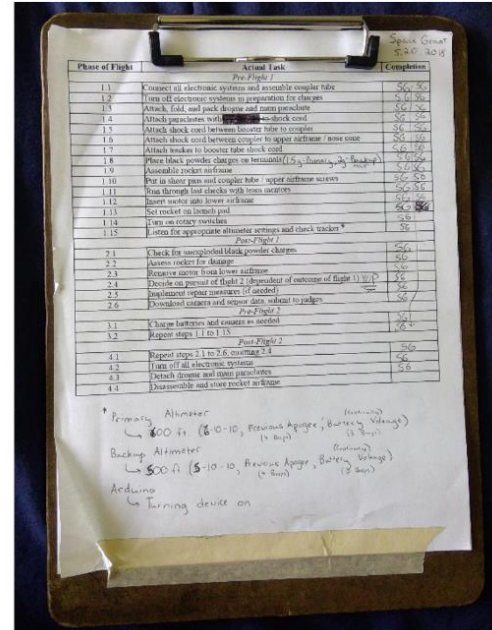 Space Grant
5.20.2018
Phase of Flight Actual Task Completion
Pre-Flight 1
1.1 Connect all electronic systems and assemble coupler tube SG SG
1.2 Turn off electronic systems in preparation for charges SG SG
1.3 Attach, fold, and pack drogue and main parachute SG SG
1.4 Attach parachutes with to shock cord SG SG
1.5 Attach shock cord between booster tube to coupler SG SG
1.6 Attach shock cord between coupler to upper airframe / nose cone SG SG
1.7 Attach tracker to booster tube shock cord SG SG
1.8 Place black powder charges on terminals (1.5g-Primary, 2g-Backup) SG SG
1.9 Assemble rocket airframe SG SG
1.10 Put in shear pins and coupler tube / upper airframe screws SG SG
1.11 Run through last checks with team mentors SG SG
1.12 Insert motor into lower airframe SG SG
1.13 Set rocket on launch pad SG
1.14 Turn on rotary switches SG
1.15 Listen for appropriate altimeter settings and check tracker * SG
Post-Flight 1
2.1 Check for unexploded black powder charges SG
2.2 Assess rocket for damage SG
2.3 Remove motor from lower airframe SG
2.4 Decide on pursuit of flight 2 (dependent of outcome of flight 1) SG
2.5 Implement repair measures (if needed) SG
2.6 Download camera and sensor data, submit to judges SG
Pre-Flight 2
3.1 Charge batteries and camera as needed SG
3.2 Repeat steps 1.1 to 1.15 SG
Post-Flight 2
4.1 Repeat steps 2.1 to 2.6, omitting 2.4 SG
4.2 Turn off all electronic systems SG
4.3 Detach drogue and main parachutes SG
4.4 Disassemble and store rocket airframe
* Primary Altimeter (Continuity)
600 ft (6-10-10, Previous Apogee, Battery Voltage)
(3 Beeps)
Backup Altimeter (Continuity)
500 ft (5-10-10, Previous Apogee, Battery Voltage)
(3 Beeps)
Arduino
Turning device on